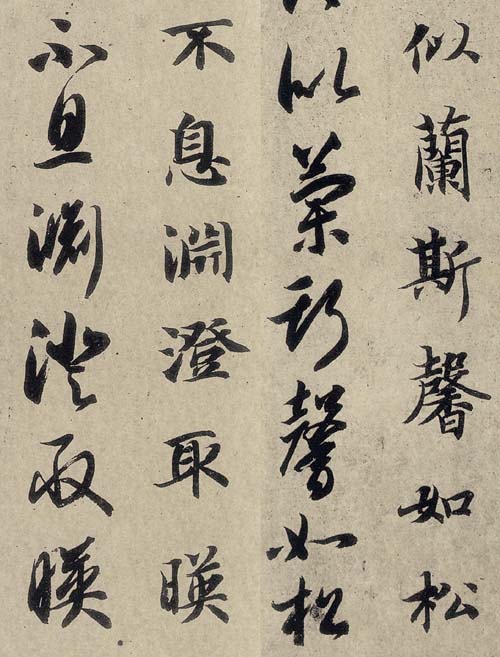 似蘭斯馨如松
似蘭斯馨如松
不息淵澄取暎
不息淵澄取暎